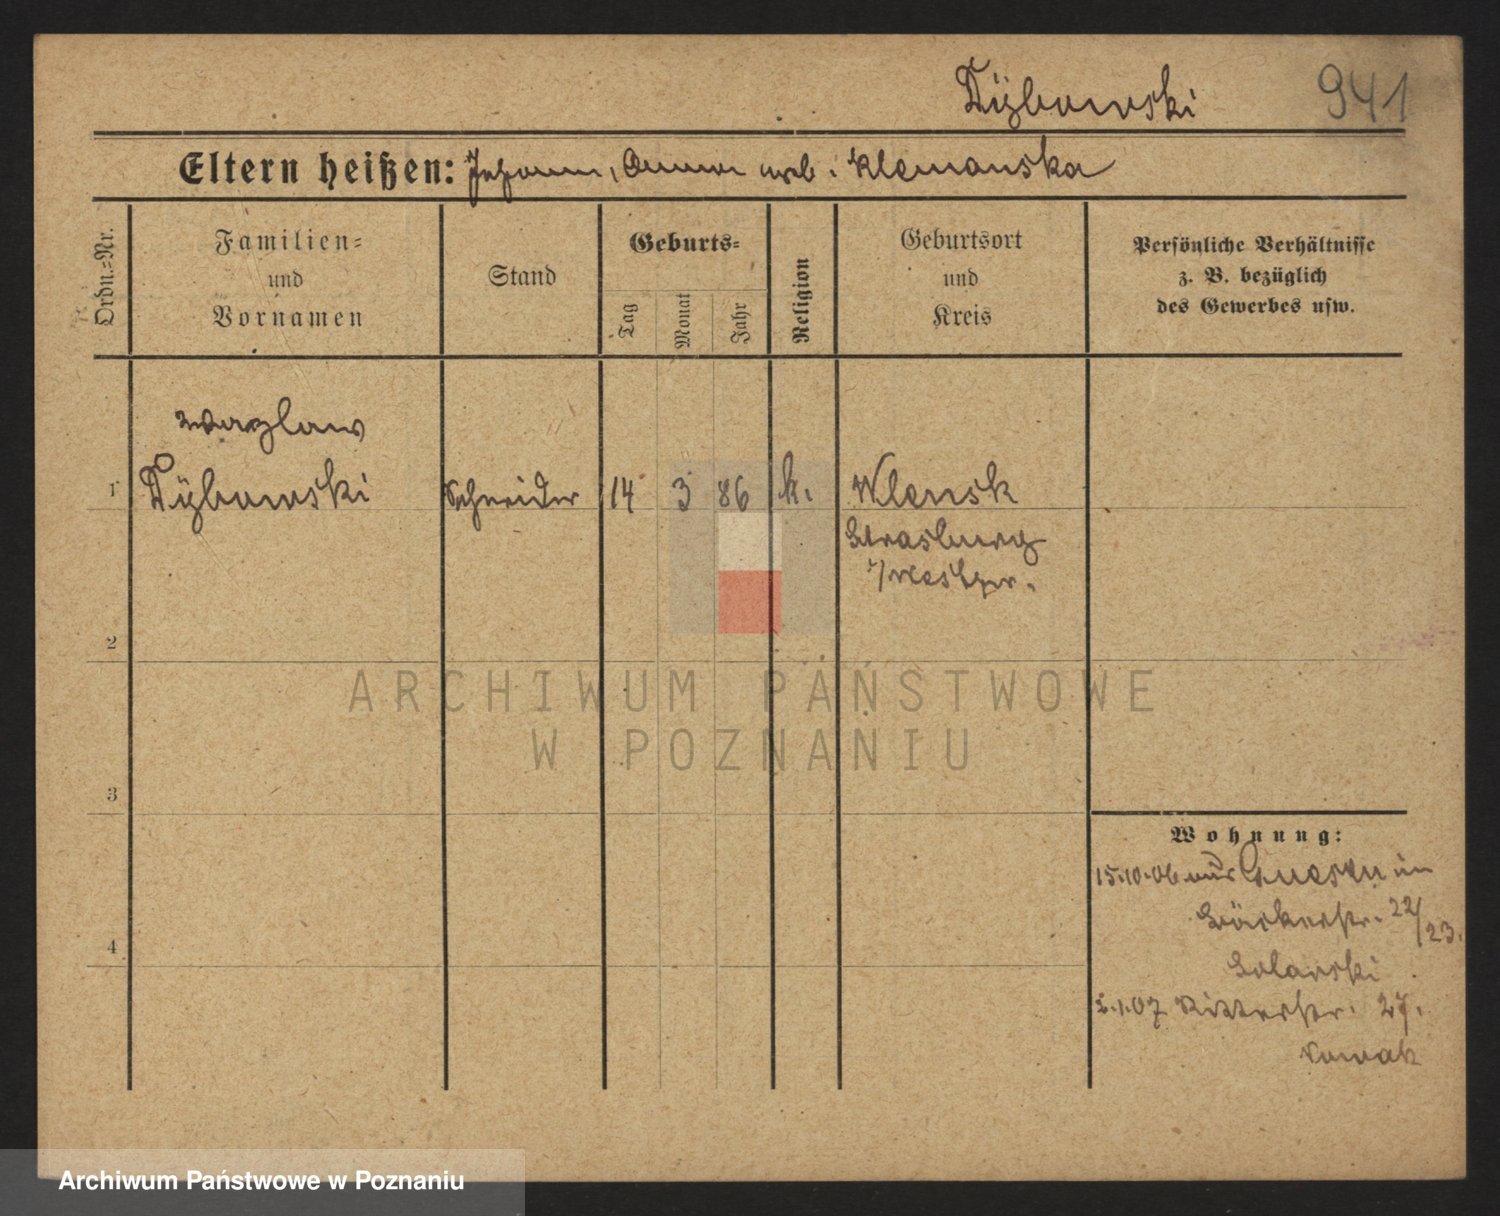 Dÿbowski 941
Eltern heißen: Johann, Anna geb. Klemanska
Ordn.=Nr.
Familien=
und
Vornamen
Stand
Geburts=
Tag
Monat
Jahr
Religion
Geburtsort
und
Kreis
Persönliche Verhältnisse
z. B. bezüglich
des Gewerbes usw.
Wazlaw
1 Dÿbowski Schneider 14 3 86 k. Wlensk
Strasburg
i/Westpr.
2
ARCHIWUM PAŃSTWOWE
W POZNANIU
3
Wohnung:
15.10.06 aus Gnesen in
Bäckerstr. 22/23.
4
1.07 Ritterstr. 27.
Nowak
Archiwum Państwowe w Poznaniu